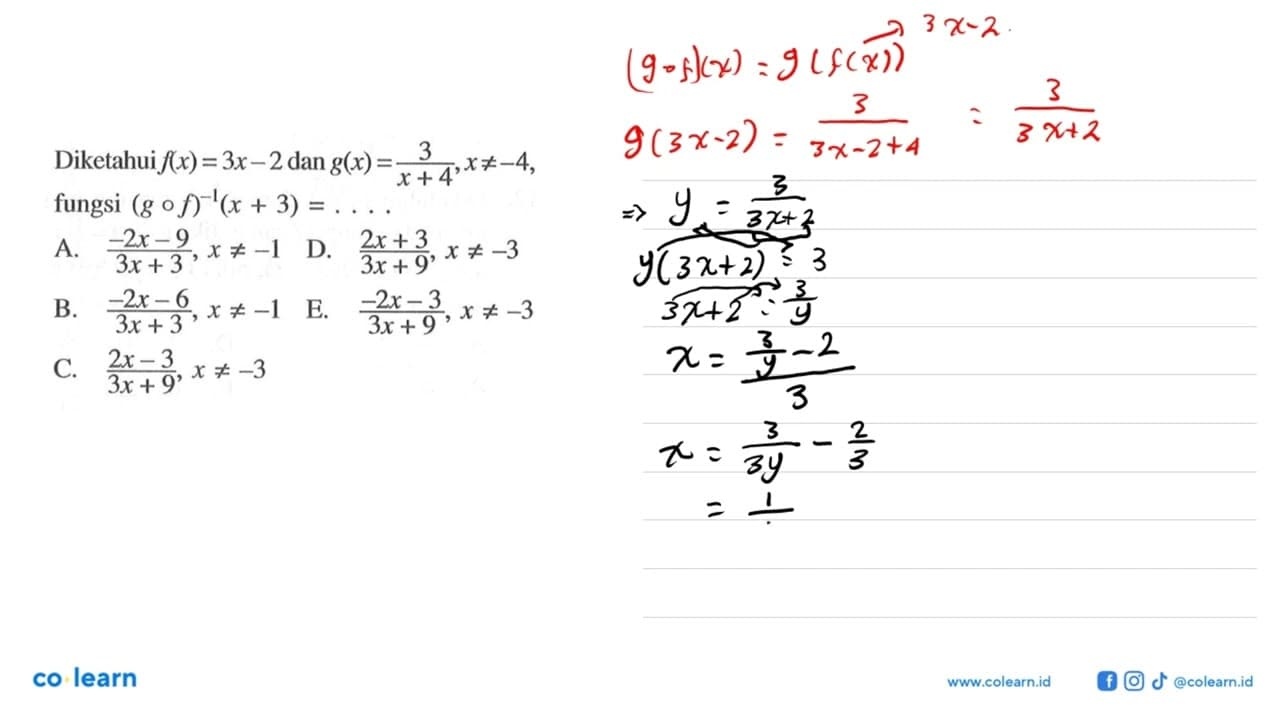 Diketahui f(x) = 3x − 2 dan g(x) = 3/(x + 4), x ≠ −4,
fungsi (g ∘ f)⁻¹(x + 3) = . . . .
A. (−2x − 9)/(3x + 3), x ≠ −1 D. (2x + 3)/(3x + 9), x ≠ −3
B. (−2x − 6)/(3x + 3), x ≠ −1 E. (−2x − 3)/(3x + 9), x ≠ −3
C. (2x − 3)/(3x + 9), x ≠ −3
3x-2.
(g∘f)(x) = g(f(x))
g(3x-2) = 3/(3x-2+4) = 3/(3x+2)
⇒ y = 3/(3x+2)
y(3x+2) = 3
3x+2 = 3/y
x = (3/y - 2)/3
x = 3/(3y) - 2/3
= 1/
co learn
www.colearn.id
@colearn.id